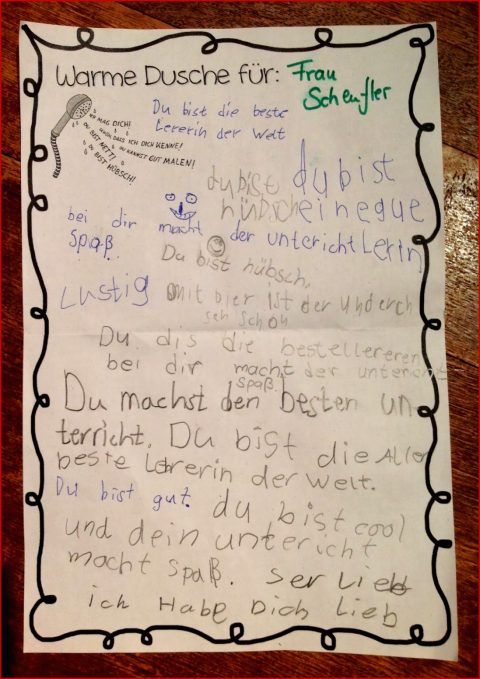 Warme Dusche für: Frau
Scheufler
ICH MAG DICH!
SCHÖN, DASS ICH DICH KENNE!
DU BIST NETT!
DU KANNST GUT MALEN!
DU BIST HÜBSCH!
Du bist die beste
Lererin der Welt
du bist du bist
hübsch eine gue
bei dir macht der untericht Lerin
Spaß.
Du bist hübsch.
Lustig mit bier ist der Underch
seh schön
Du dis die bestellereren
bei dir macht der untericht
spaß.
Du machst den besten un-
terricht. Du bist die Aller
beste Lererin der Welt.
Du bist gut. du bist cool
und dein untericht
macht spaß. ser Lieb
ich Habe Dich Lieb